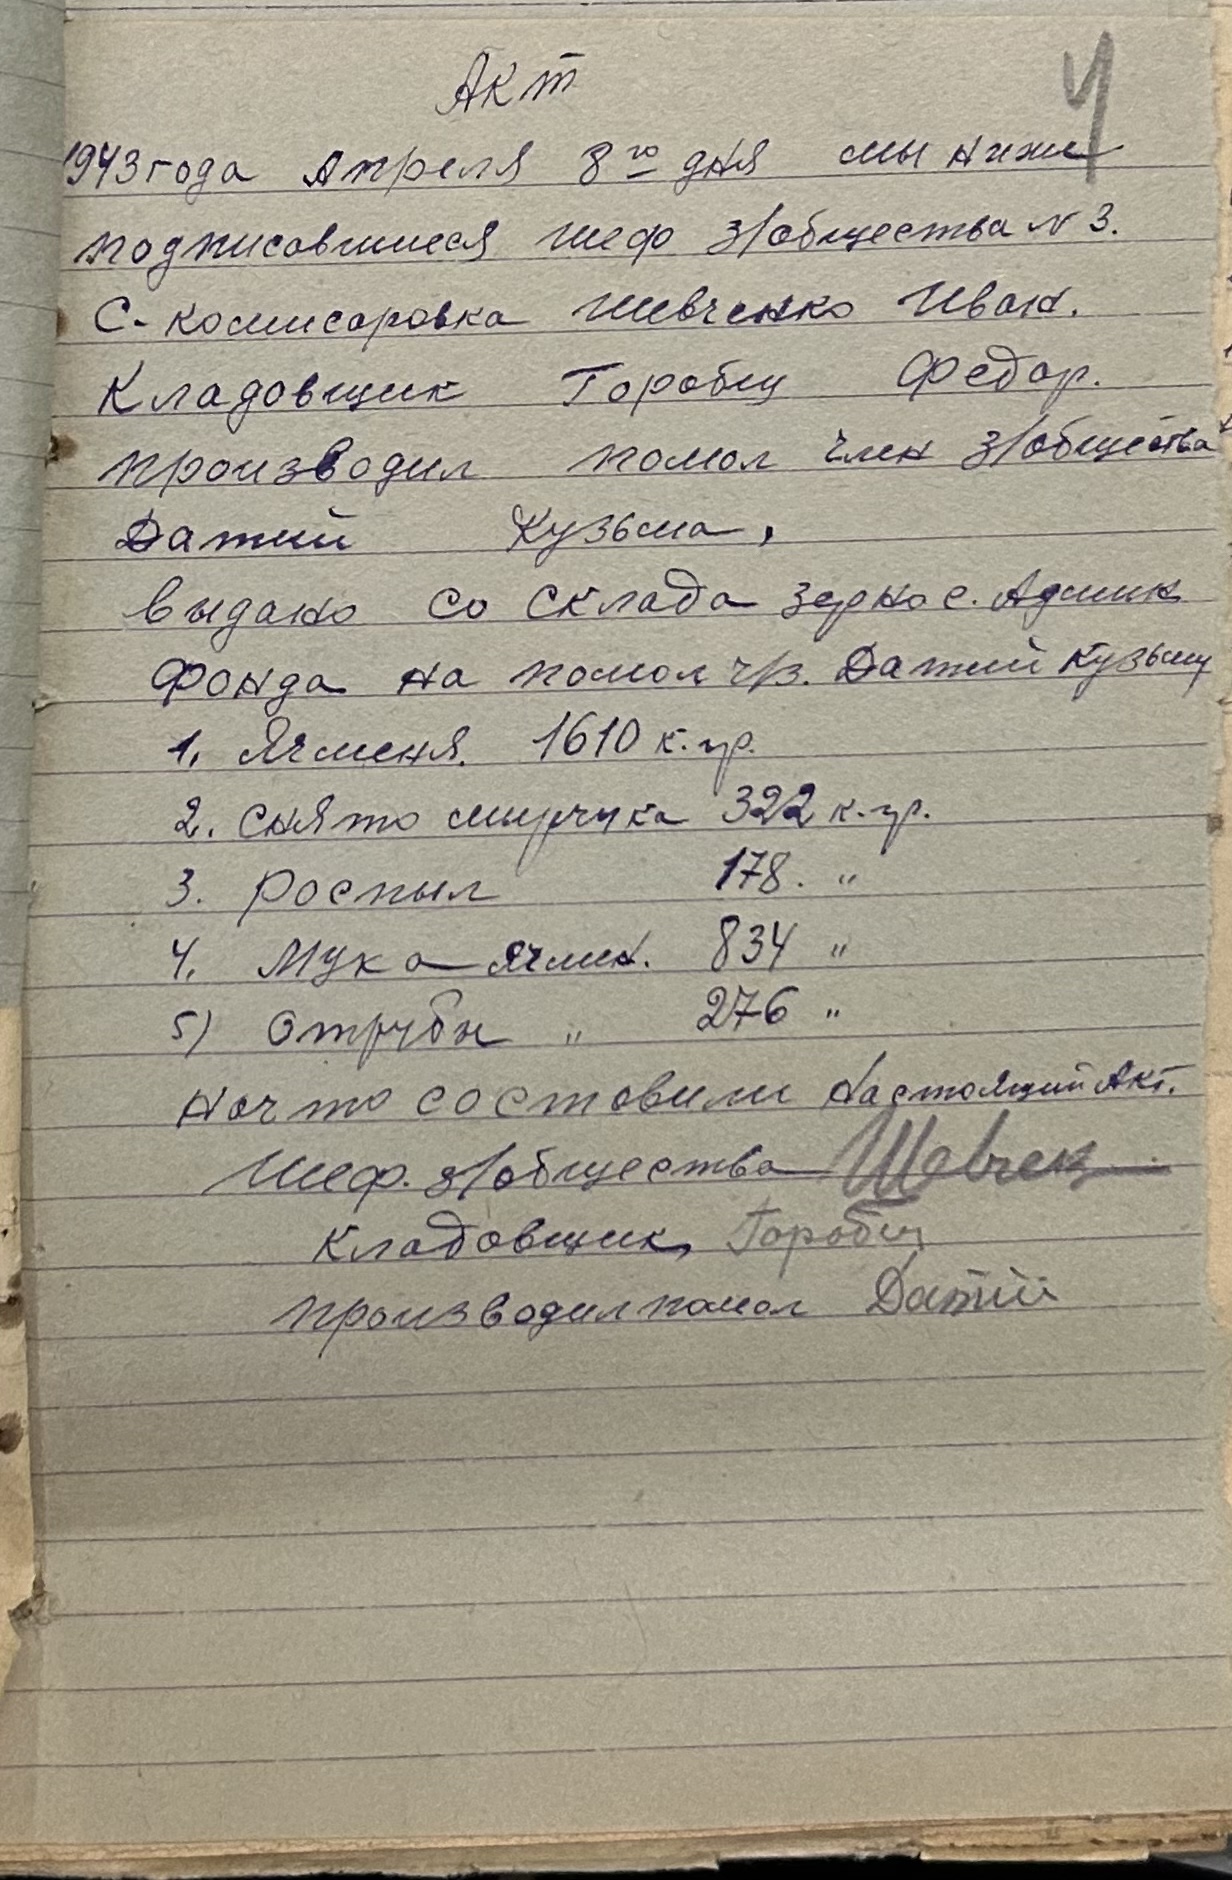 Акт
4
1943 года Апреля 8го дня мы ниже
подписавшиеся шеф з/общества N 3.
С-комисаровка Шевченко Иван.
Кладовщик Горобец Федор.
производил помол член з/общества
Датий Кузьма,
выдано со склада зерно с. Админ
Фонда на помол ч/з. Датий Кузьму
1. Ячменя. 1610 к.гр.
2. снято мирчука 322 к.гр.
3. роспыл 178. "
4. Мука ячмен. 834 "
5) Отруби " 276 "
начто составили настоящий Акт.
Шеф. з/общества Шевчен
Кладовщик, Горобец
производил помол Датий